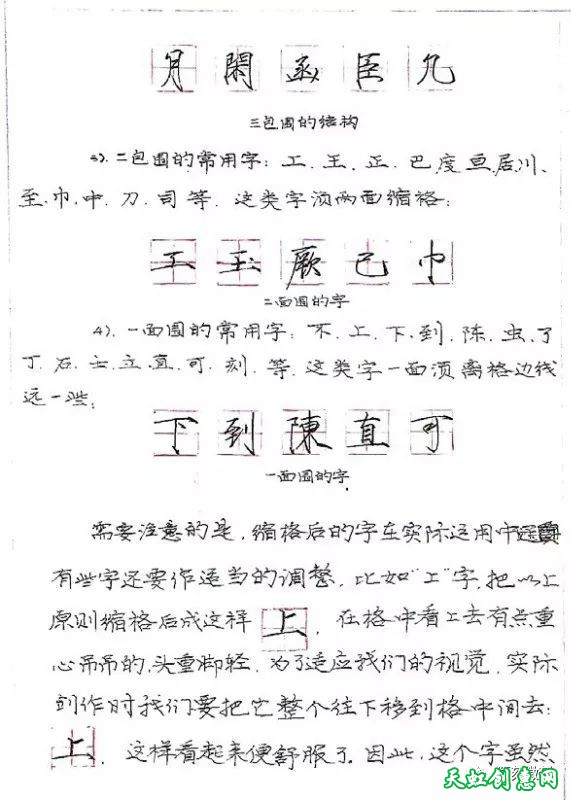 月 閑 函 臣 凡
三包围的结构
3). 二包围的常用字: 工. 王. 正. 巴. 度. 鱼. 居. 川.
至. 巾. 中. 刀. 司 等. 这类字须两面缩格:
工 玉 厥 己 巾
二面围的字
4). 一面围的常用字: 不. 上. 下. 到. 陈. 虫. 了
丁. 石. 士. 立. 直. 可. 刻. 等. 这类字一面须离格边线
远一些:
下 到 陳 直 可
一面围的字
需要注意的是, 缩格后的字在实际运用中
有些字还要作适当的调整. 比如“上”字, 把以上
原则缩格后成这样 上 . 在格中看上去有点重
心吊吊的, 头重脚轻. 为了适应我们的视觉. 实际
创作时我们要把它整个往下移到格中间去:
上 . 这样看起来便舒服了. 因此, 这个字虽然
天虹创意网